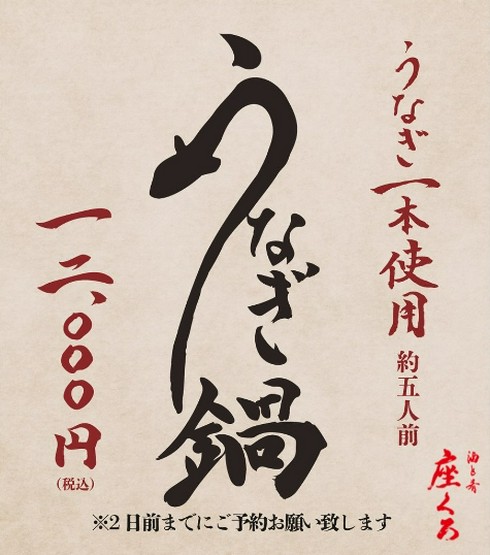 うなぎ一本使用 約五人前
うなぎ鍋
一二、〇〇〇円
(税込)
※2日前までにご予約お願い致します
酒と肴
座くろ